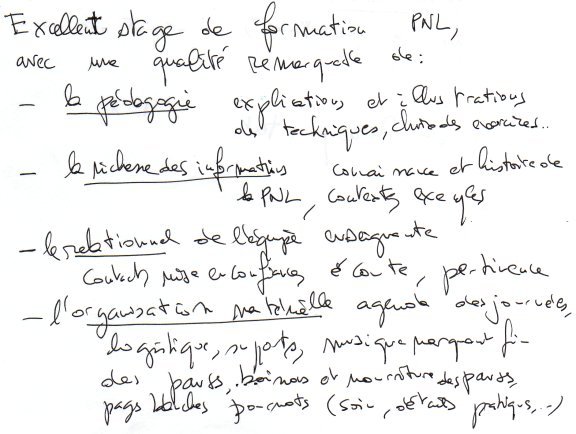 Excellent stage de formation PNL,
avec une qualité remarquable de :
- la pédagogie explications et illustrations
des techniques, choix des exercices..
- la richesse des informations connaissance et histoire de
la PNL, contexte, exemples
- le relationnel de l'équipe enseignante
Contact, mise en confiance, écoute, pertinence
- l'organisation matérielle agenda des journées,
logistique, supports, musique marquant fin
des pauses, boissons et nourriture des pauses,
(soin, détails pratiques, ...)